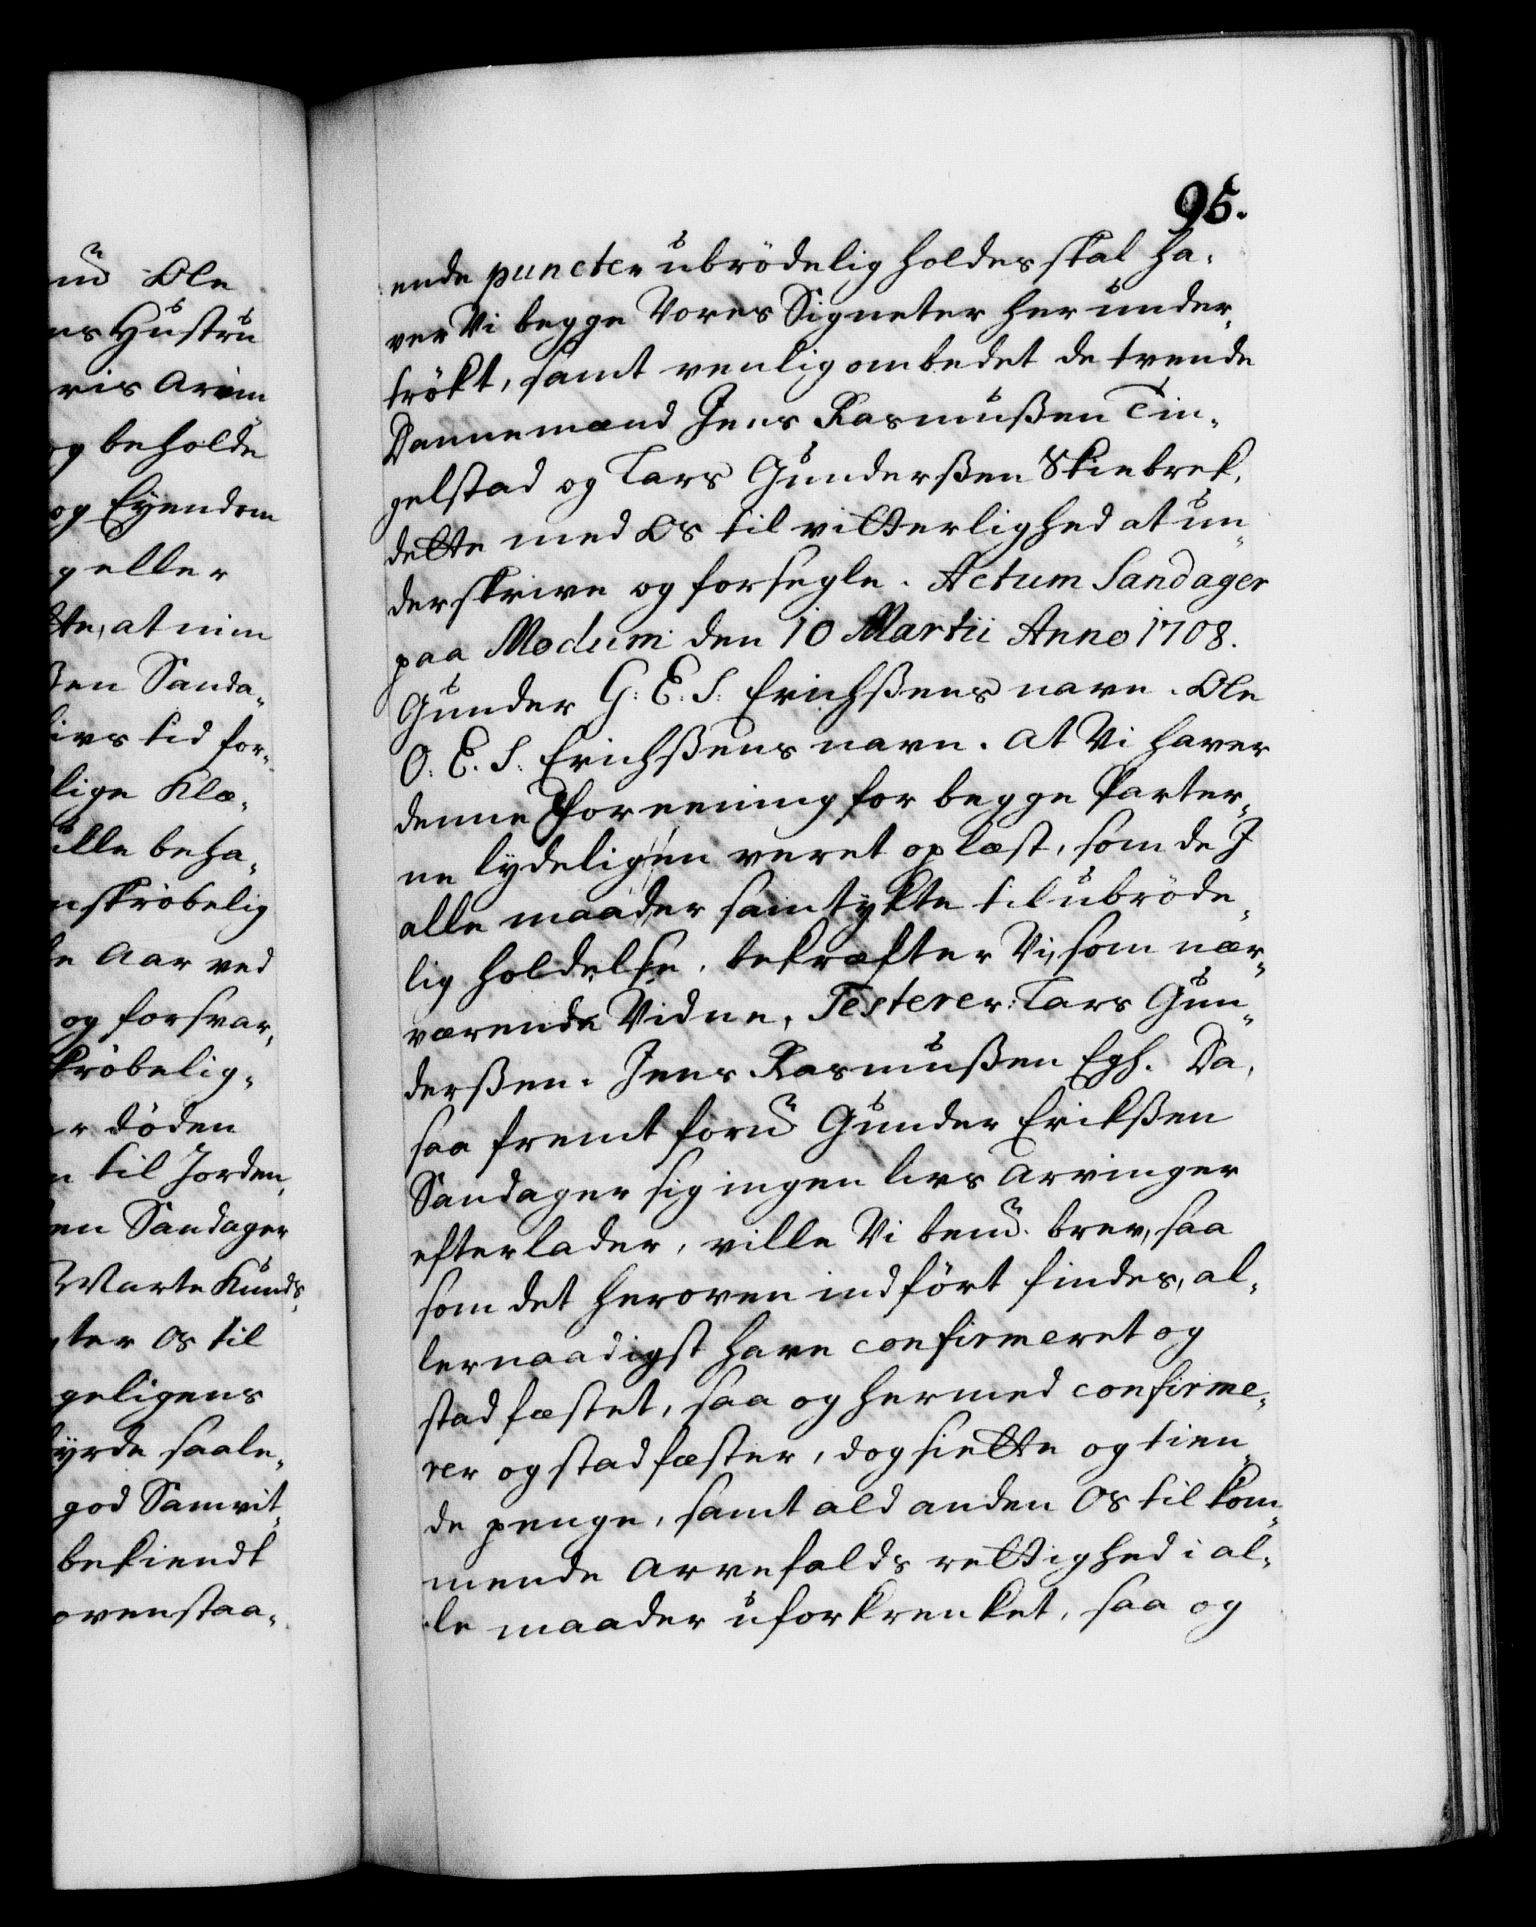 95.
ende puncter ubrödelig holdes skal ha-
ver Vi begge Vores Signeter her under
trökt, samt venlig ombedet de tvende
Dannemænd Jens Rasmußen Tin-
gelstad og Lars Gunderßen Skinbrek,
dette med Os til vitterlighed at un-
derskrive og forsegle. Actum Sandager
paa Modum den 10 Martii Anno 1708.
Gunder G: E: S: Erichßens navn. Ole
O: E. S: Erichßens navn. At Vi haver
denne Foreening for begge Parter-
ne lydeligen veret oplæst, som de I
alle maader samtykte til ubröde-
lig holdelse, bekræfter Vi, som nær-
værende Vidne, Testerer: Lars Gun-
derßen. Jens Rasmußen Egh. Da,
saa fremt forn Gunder Erikßen
Sandager sig ingen livs Arvinger
efterlader, ville Vi bemt brev, saa
som det heroven indfört findes, al-
lernaadigst have confirmeret og
stadfæstet, saa og hermed confirme-
rer og stadfæster, dog siette og tien-
de penge, samt ald anden Os tilkom-
mende Arvefalds rettighed i al-
le maader uforkrenket, saa og
n Ole
ns Hustru
og beholde
og Eyendom
geller
tte, at min
ßen Sanda-
livs tid for-
lige Klæ-
ville beha-
skröbelig
e Aar ved
og forsvar,
kröbelig-
er döden
n til Jorden,
en Sandager
Marte Kunds-
gter Os til
geligens
byrde saale-
god Samvit-
bekiendt
ovenstaa-